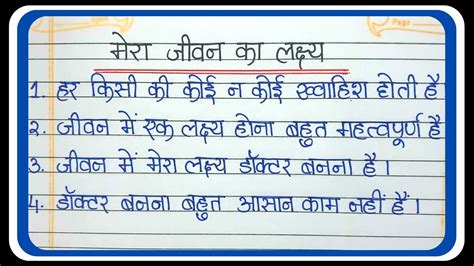 Page
मेरा जीवन का लक्ष्य
1. हर किसी की कोई न कोई ख्वाहिश होती है
2. जीवन में एक लक्ष्य होना बहुत महत्वपूर्ण है
3. जीवन में मेरा लक्ष्य डॉक्टर बनना है।
4. डॉक्टर बनना बहुत आसान काम नहीं हैं।